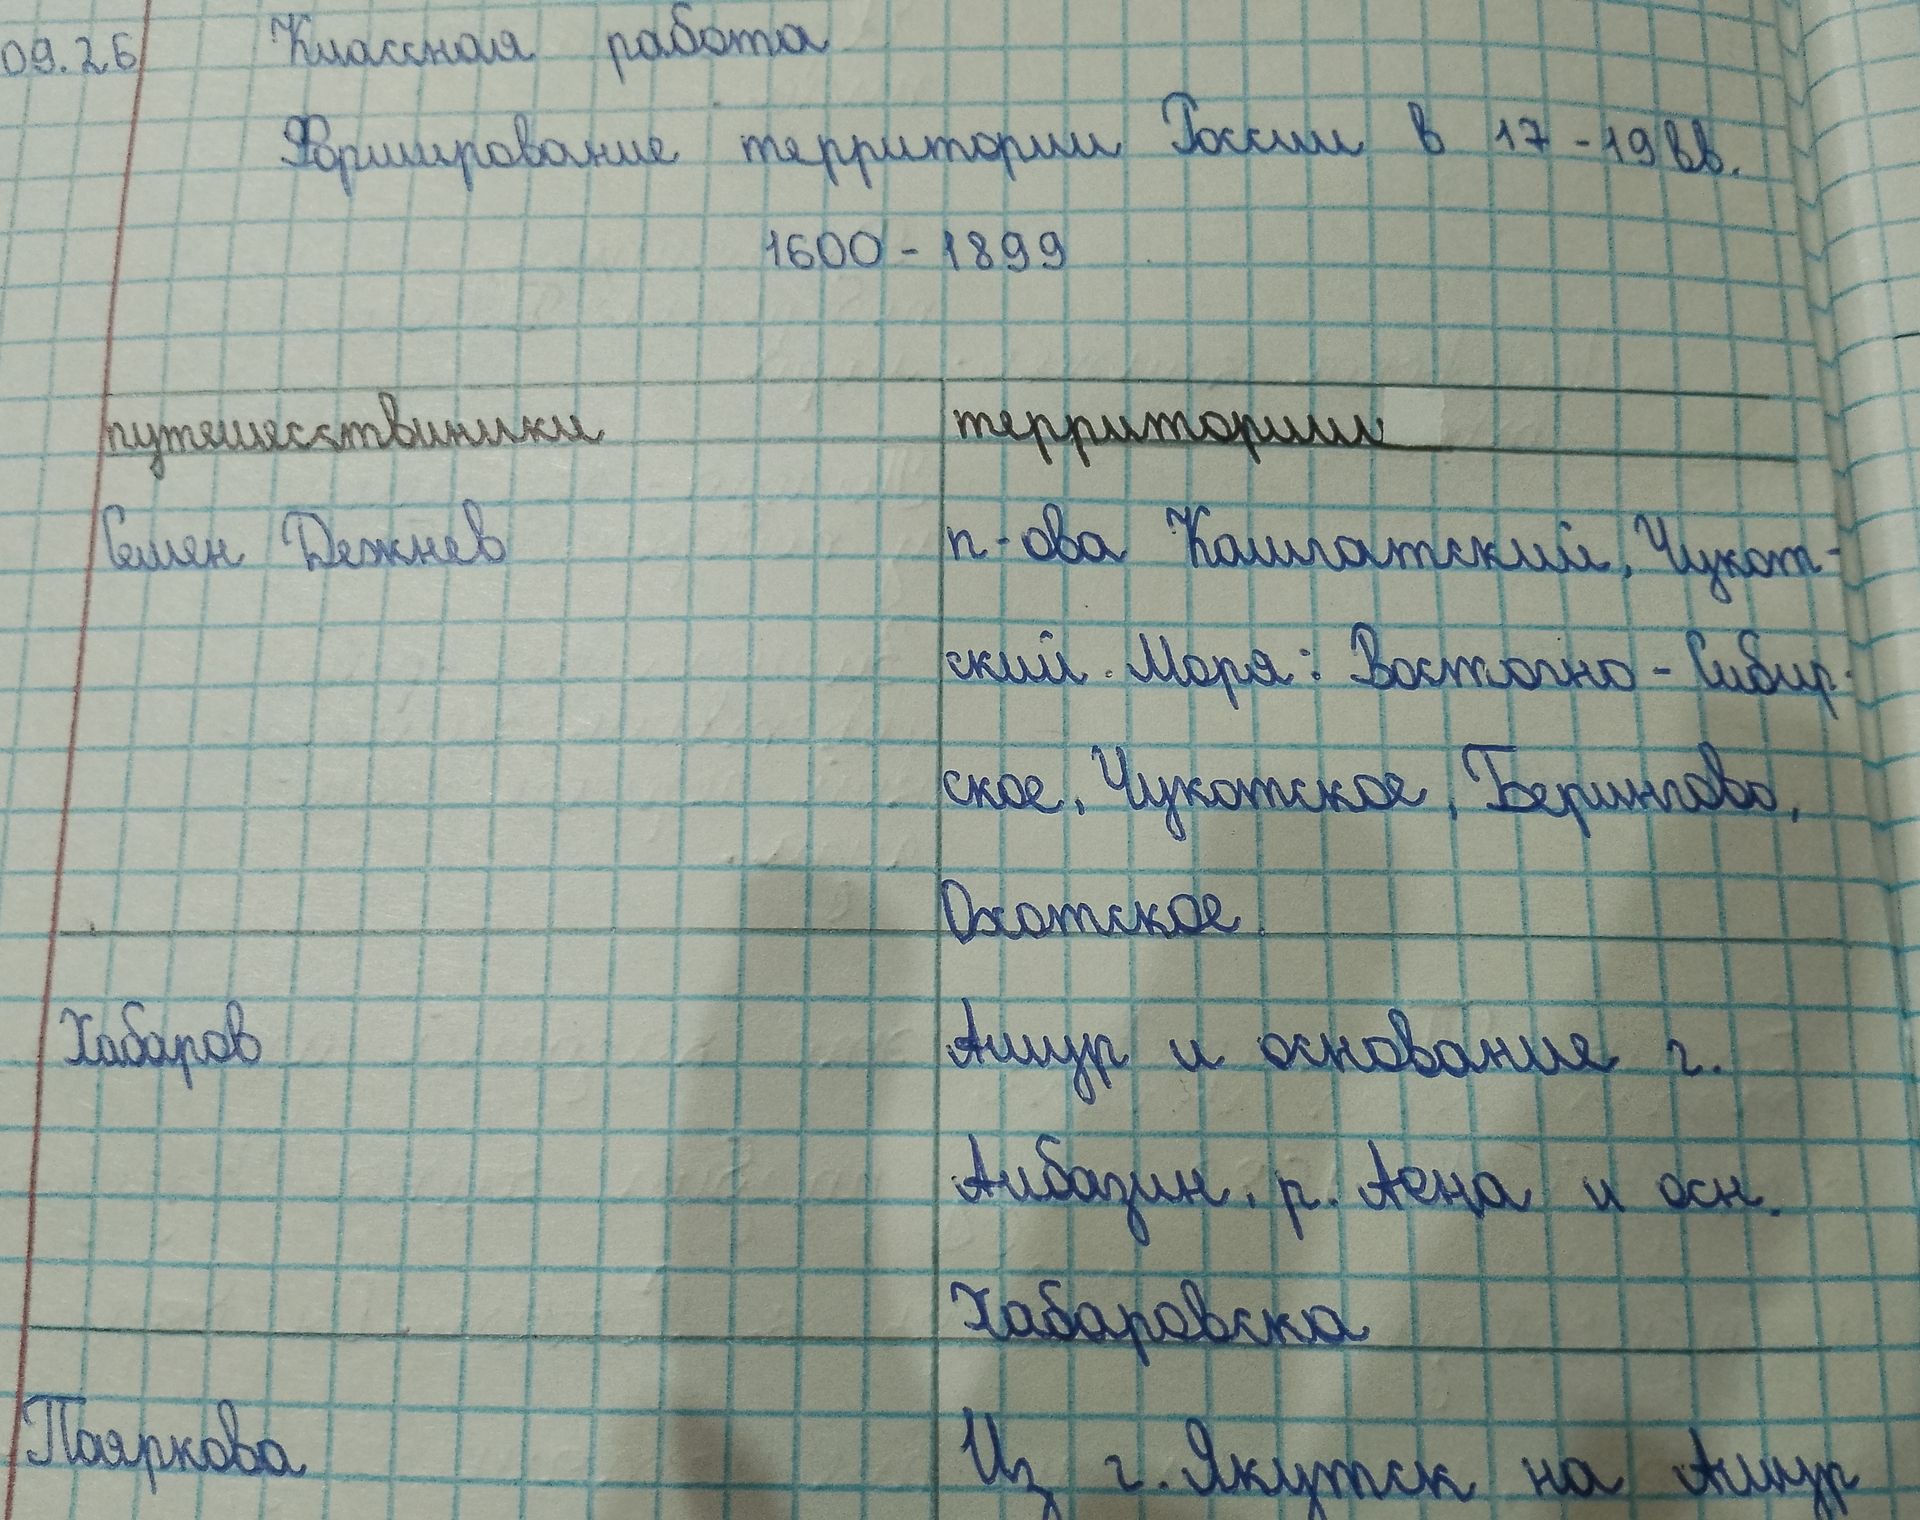 09.26 Классная работа
Формирование территории России в 17-19 вв.
1600-1899
путешесствиники территории
Семен Дежнев п-ова Камчатский, Чукот-
ский. Моря: Восточно-Сибир-
ское, Чукотское, Берингово,
Охотское.
Хабаров Амур и основание г.
Албазин, р. Лена и осн.
Хабаровска
Пояркова Из г. Якутск на Амур